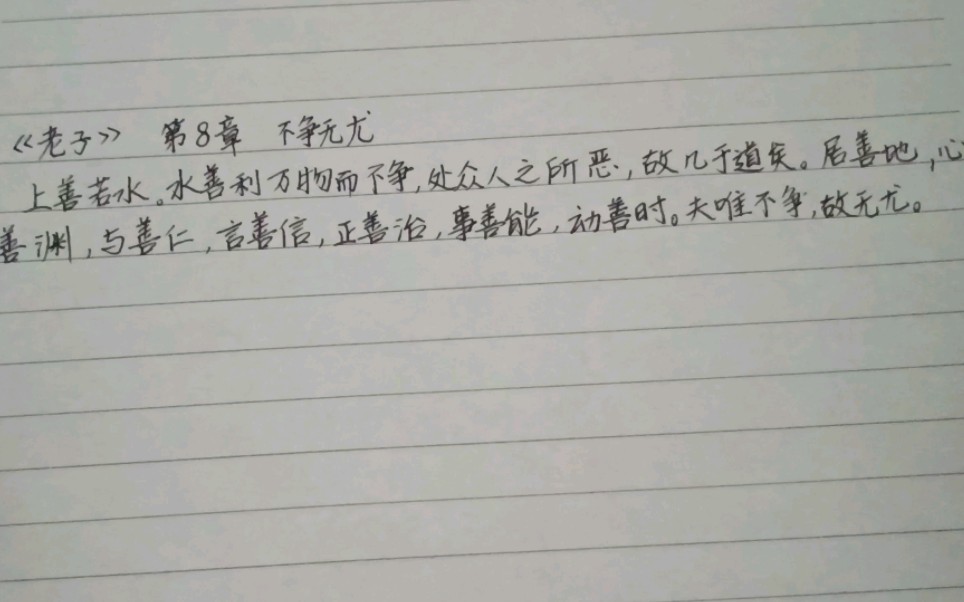 《老子》 第8章 不争无尤
上善若水。水善利万物而不争,处众人之所恶,故几于道矣。居善地,心
善渊,与善仁,言善信,正善治,事善能,动善时。夫唯不争,故无尤。